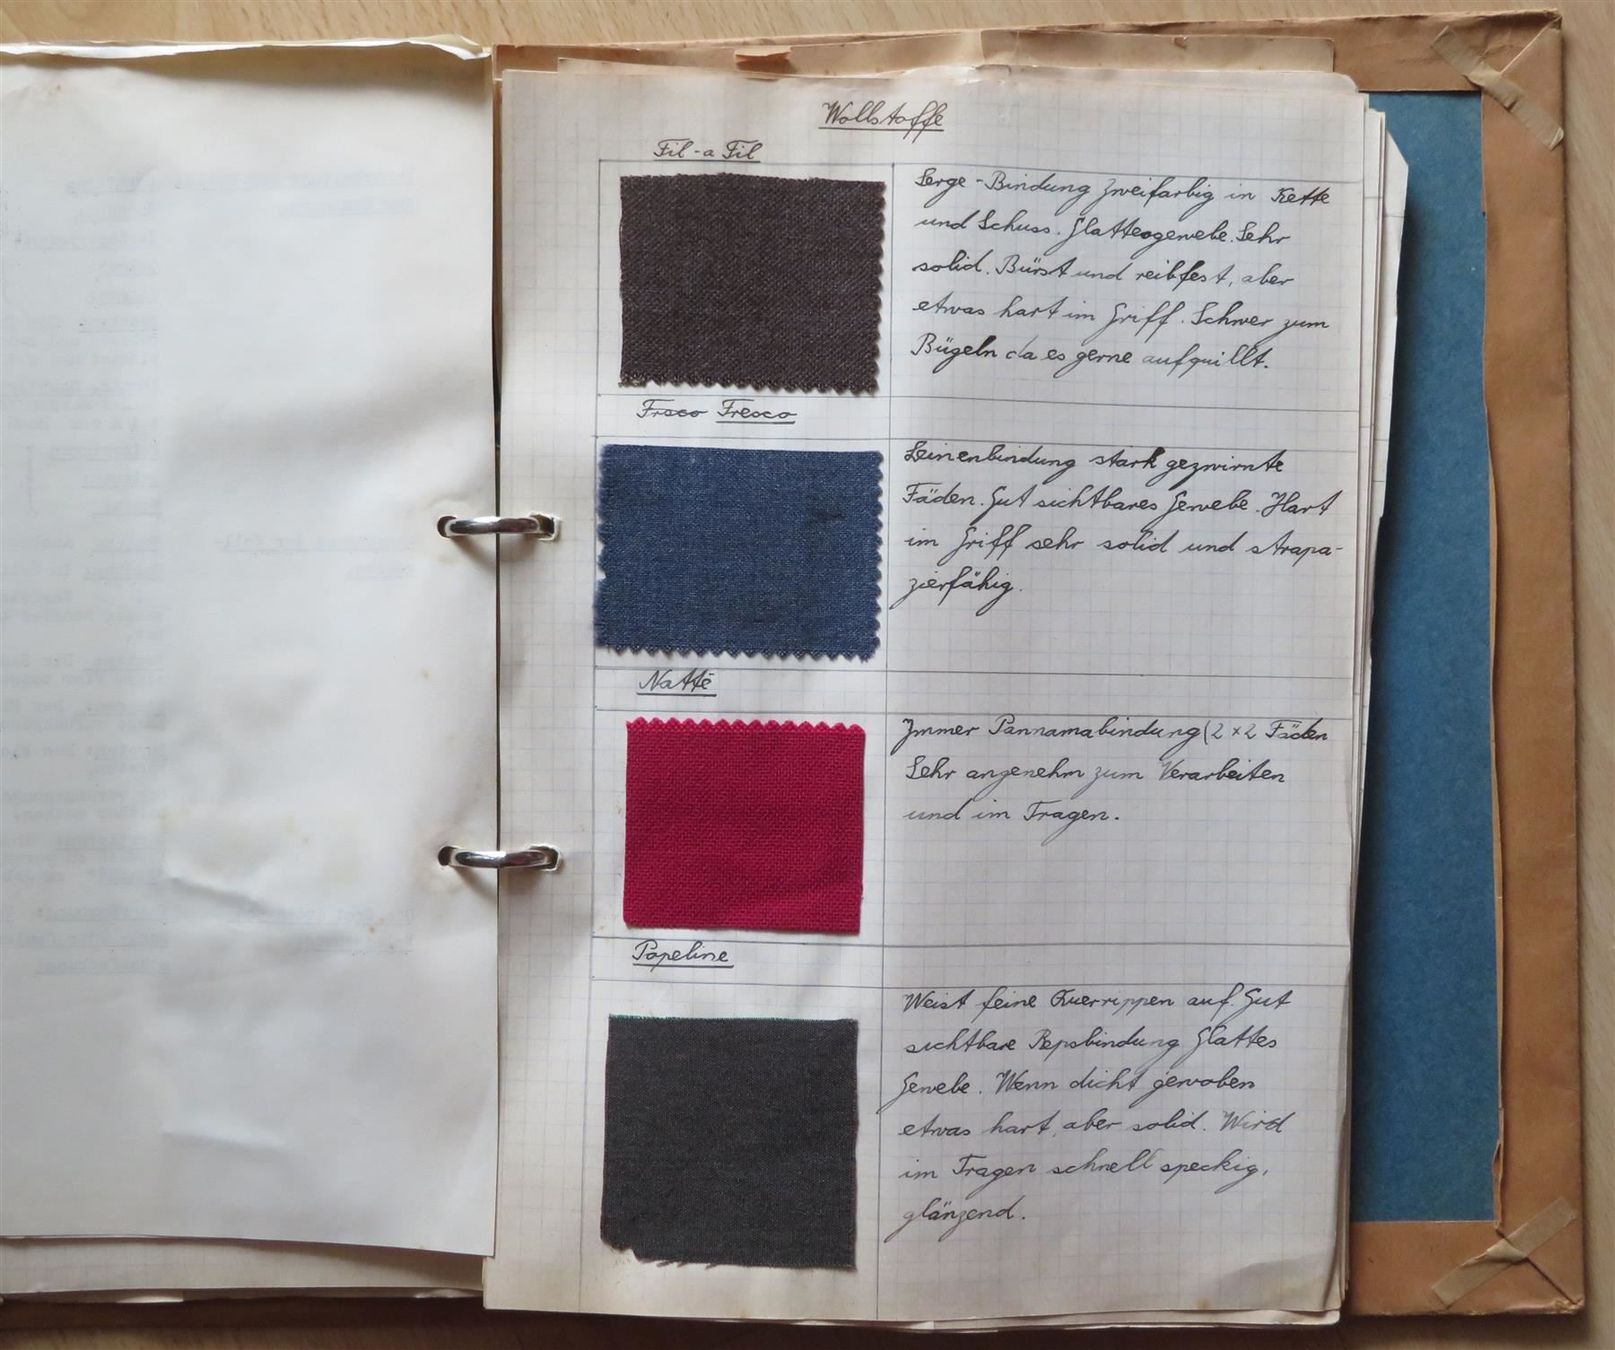 Wollstoffe
Fil-a Fil
Serge-Bindung zweifarbig in Kette
und Schuss. Glattesgewebe. Sehr
solid. Bürst und reibfest, aber
etwas hart im Griff. Schwer zum
Bügeln da es gerne aufquillt.
Frsco Fresco
Leinenbindung stark gezwirnte
Fäden. Gut sichtbares Gewebe. Hart
im Griff sehr solid und strapa-
zierfähig.
Natté
Immer Pannamabindung (2x2 Fäden
Sehr angenehm zum Verarbeiten
und im Tragen.
Popeline
Weist feine Querrippen auf. Gut
sichtbare Repsbindung Glattes
Gewebe. Wenn dicht gewoben
etwas hart, aber solid. Wird
im Tragen schnell speckig,
glänzend.